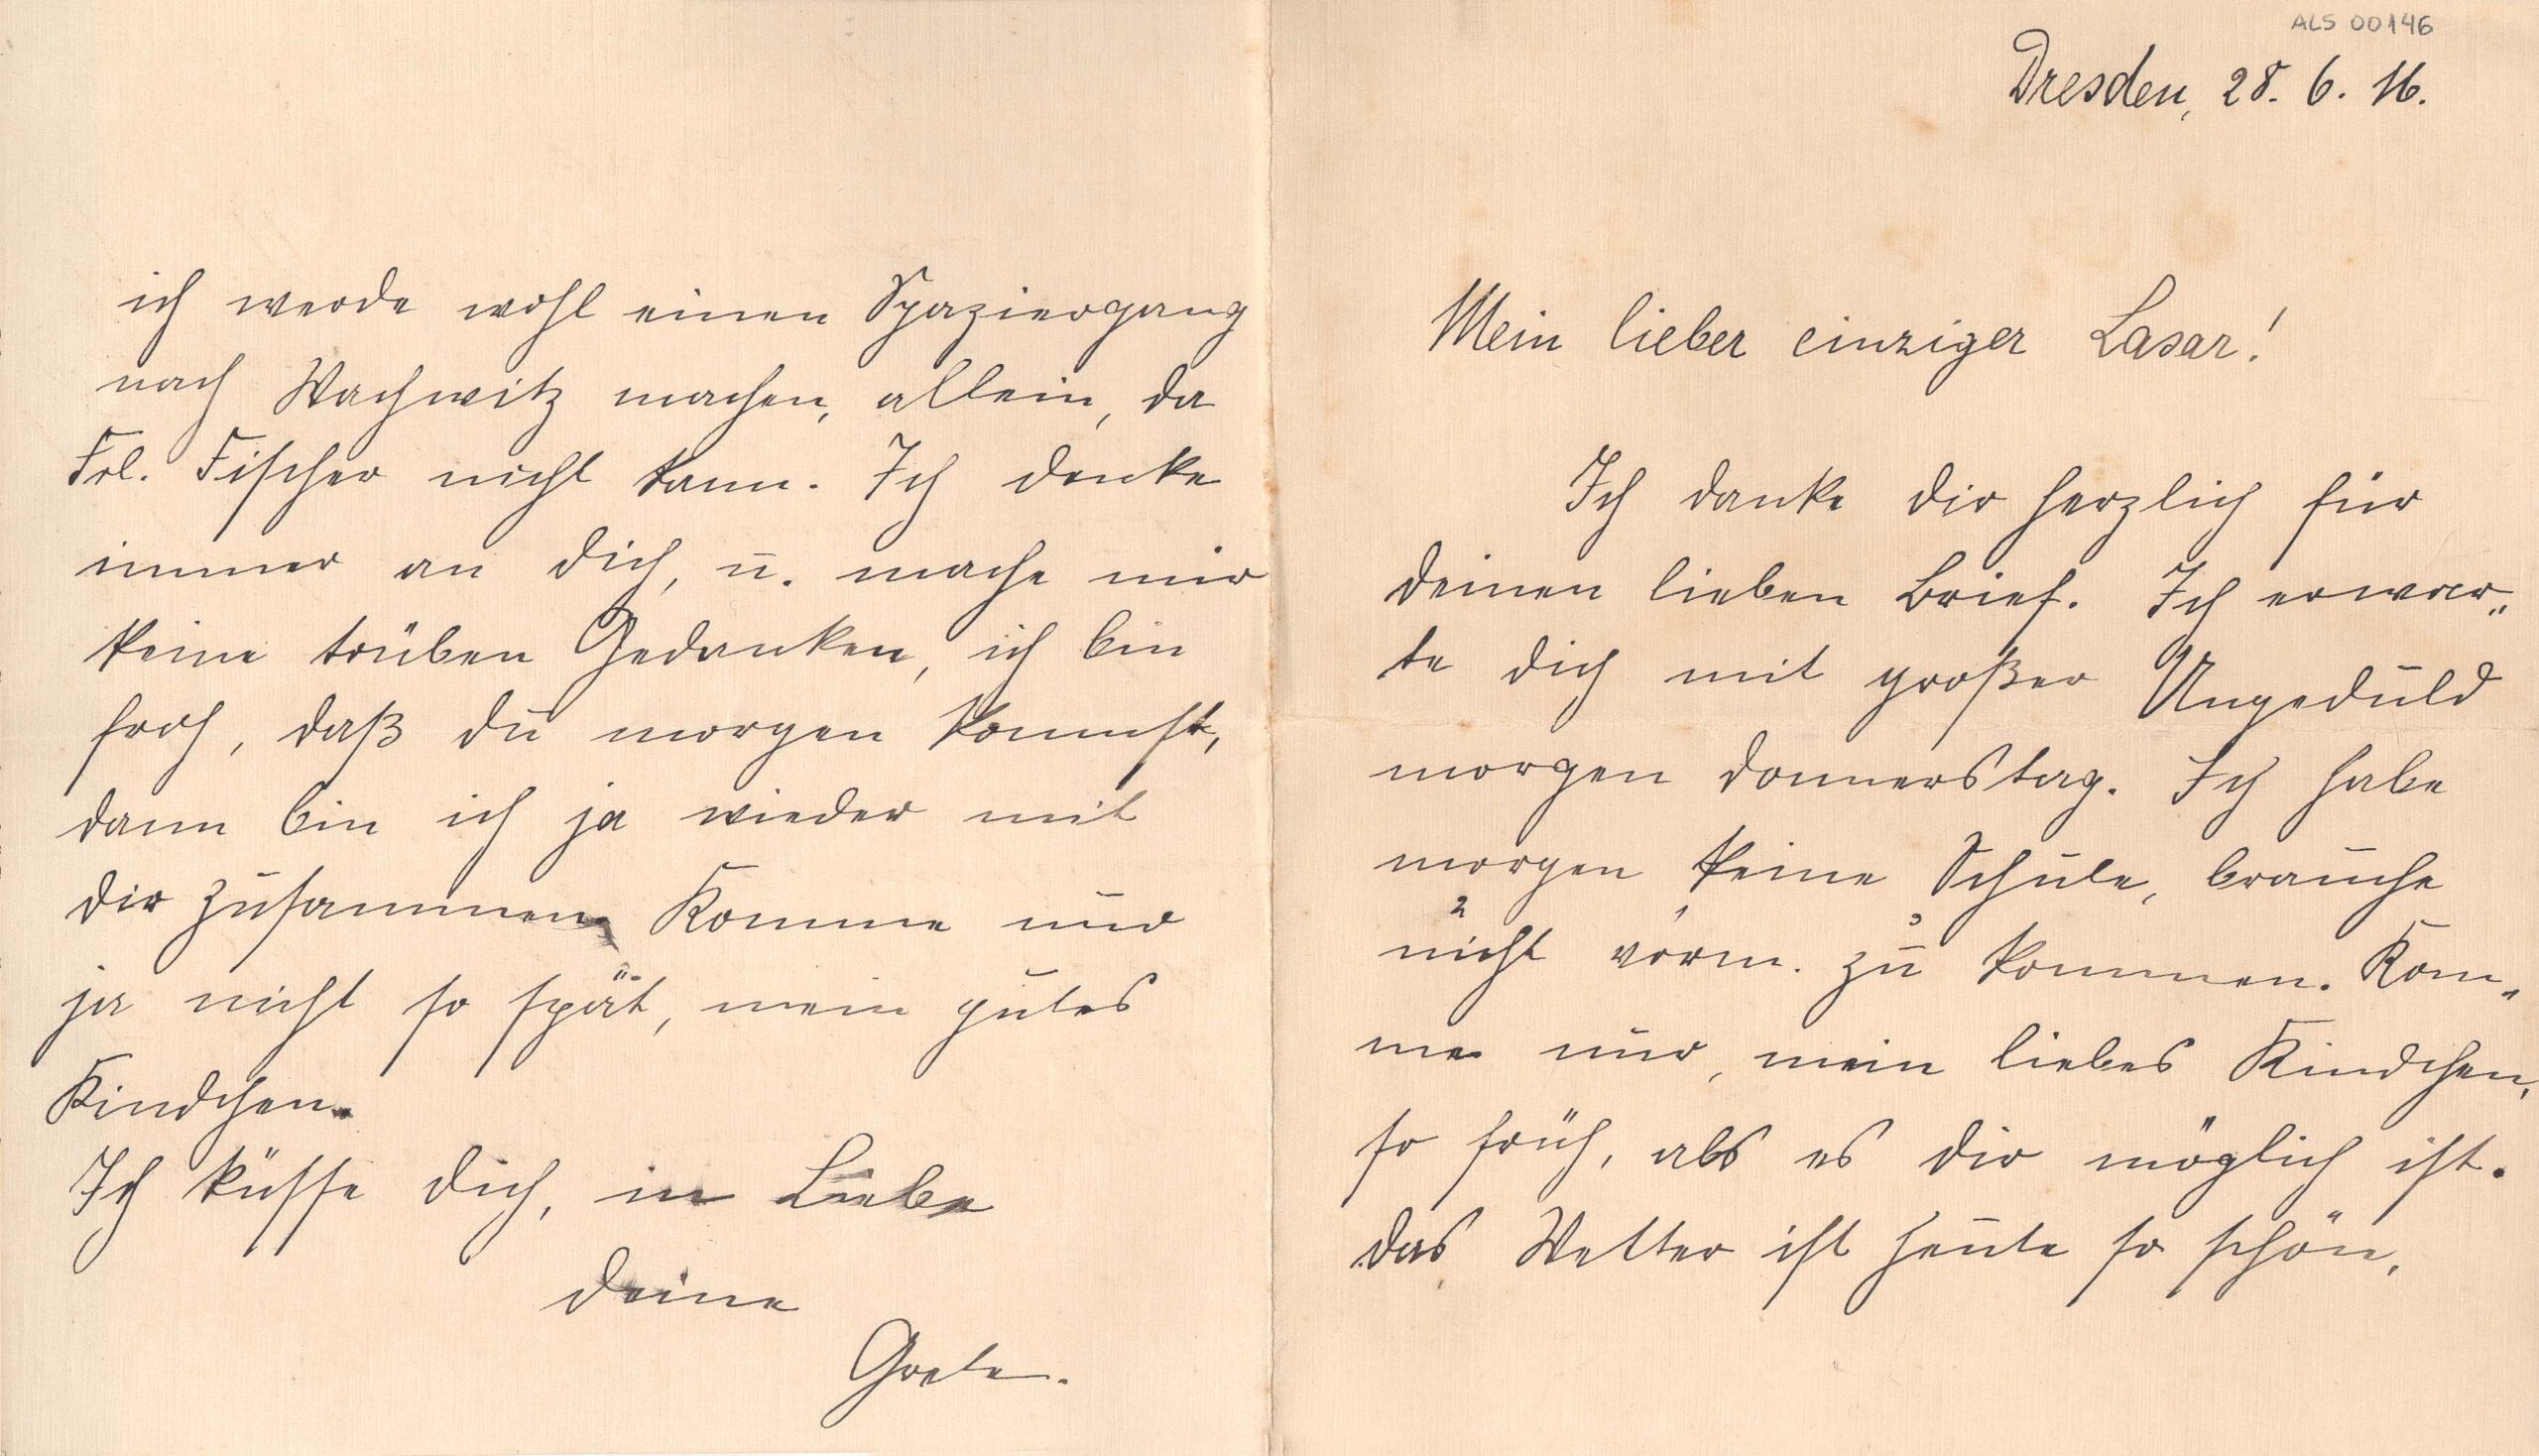 ALS 00146
Dresden, 28. 6. 16.
Mein lieber einziger Lasar!
Ich danke dir herzlich für
deinen lieben Brief. Ich erwar„
te dich mit großer Ungeduld
morgen Donnerstag. Ich habe
morgen keine Schule, brauche
2 1 3
nicht vorm. zu kommen. Kom„
me nur, mein liebes Kindchen,
so früh, als es dir möglich ist.
Das Wetter ist heute so schön,
ich werde wohl einen Spaziergang
nach Wachwitz machen, allein, da
Frl. Fischer nicht kann. Ich denke
immer an dich, u. mache mir
keine trüben Gedanken, ich bin
froh, daß du morgen kommst,
dann bin ich ja wieder mit
dir zusammen. Komme nur
ja nicht so spät, mein gutes
Kindchen.
Ich küsse dich, in Liebe
deine
Grete.